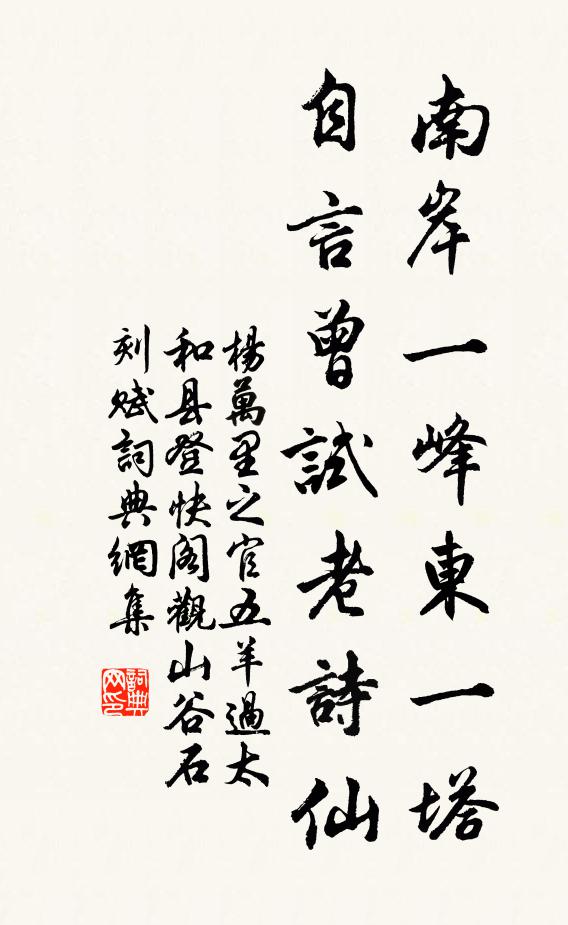 南岸一峰東一塔
自言曾試老詩仙
楊萬里之官五羊過太
和县登快阁觀山谷石
刻赋詞典網集
詞典
网印